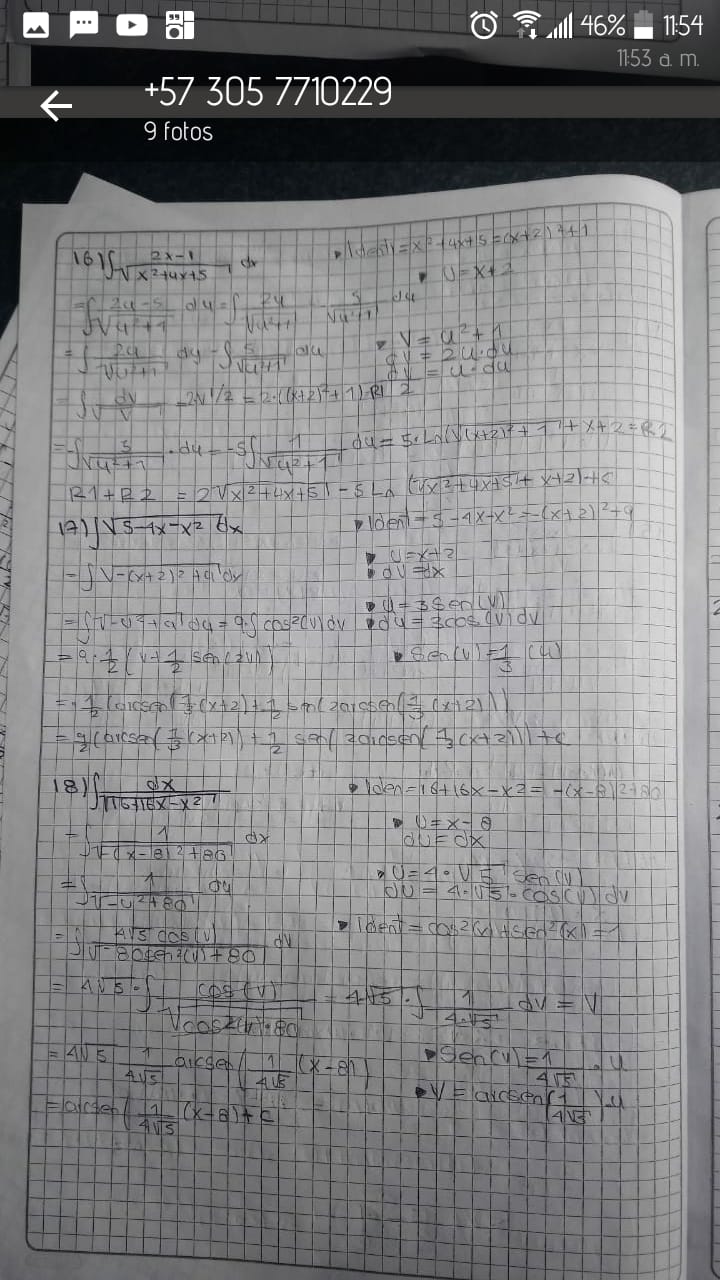 46% 11:54
11:53 a. m.
+57 305 7710229
9 fotos
16) ∫ 2x-1/√x²+4x+5 dx • Identi = x²+4x+5 = (x+2)²+1
• U = x+2
= ∫ 2u-5/√u²+1 du = ∫ 2u/√u²+1 - 5/√u²+1 du
• V = u²+1
= ∫ 2u/√u²+1 du - ∫ 5/√u²+1 du dV = 2u·du
dV/2 = u·du
= ∫ dv/√v = 2v^1/2 = 2·((x+2)²+1) R1
= -∫ 5/√u²+1 · du = -5∫ 1/√u²+1 du = 5·Ln(√(x+2)²+1 + x+2 = R2
R1+R2 = 2√x²+4x+5 - 5 Ln (√x²+4x+5 + x+2)+C
17) ∫ √5-4x-x² dx • Ident = 5-4x-x² = -(x+2)²+9
• U = x+2
= ∫ √-(x+2)²+9 dx • du = dx
• u = 3Sen(v)
= ∫ √-u²+9 du = 9·∫ cos²(v) dv • du = 3cos(v) dv
= 9·1/2 (v+1/2 sen(2v)) • Sen(v) = 1/3 (u)
= 9·1/2 (arcsen(1/3 (x+2)+1/2 sen(2arcsen(1/3 (x+2)))
= 9/2 (arcsen(1/3 (x+2))+1/2 sen(2arcsen(1/3 (x+2)))+c
18) ∫ dx/√16+16x-x² • Iden = 16+16x-x² = -(x-8)²+80
• U = x-8
= ∫ 1/√-(x-8)²+80 dx du = dx
• U = 4·√5 sen(v)
= ∫ 1/√-u²+80 du du = 4·√5·cos(v) dv
= ∫ 4√5 cos(v)/√-80sen²(v)+80 dv • Ident = cos²(x)+sen²(x) = 1
= 4√5·∫ cos(v)/√cos²(v)·80 = 4√5·∫ 1/4·√5 dv = V
= 4√5 1/4√5 arcsen(1/4√5 (x-8)) • Sen(v) = 1/4√5 · u
• V = arcsen(1/4√5)u
= arcsen(1/4√5 (x-8)+c